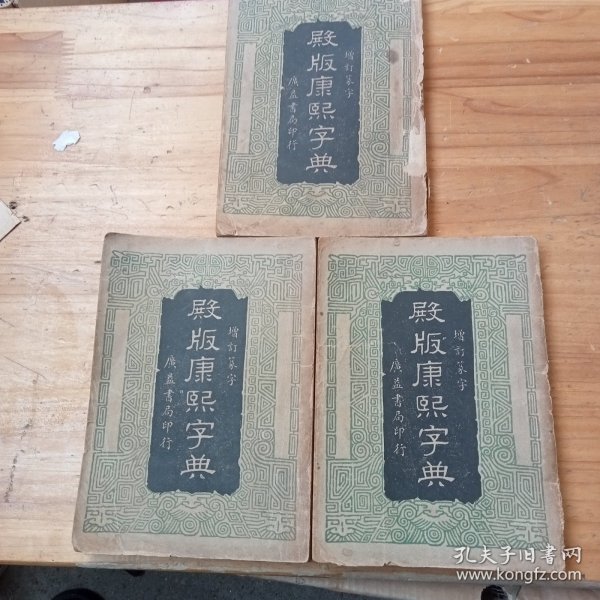 增訂篆字
殿版康熙字典
廣益書局印行
增訂篆字
殿版康熙字典
廣益書局印行
增訂篆字
殿版康熙字典
廣益書局印行
孔夫子旧书网
www.kongfz.com